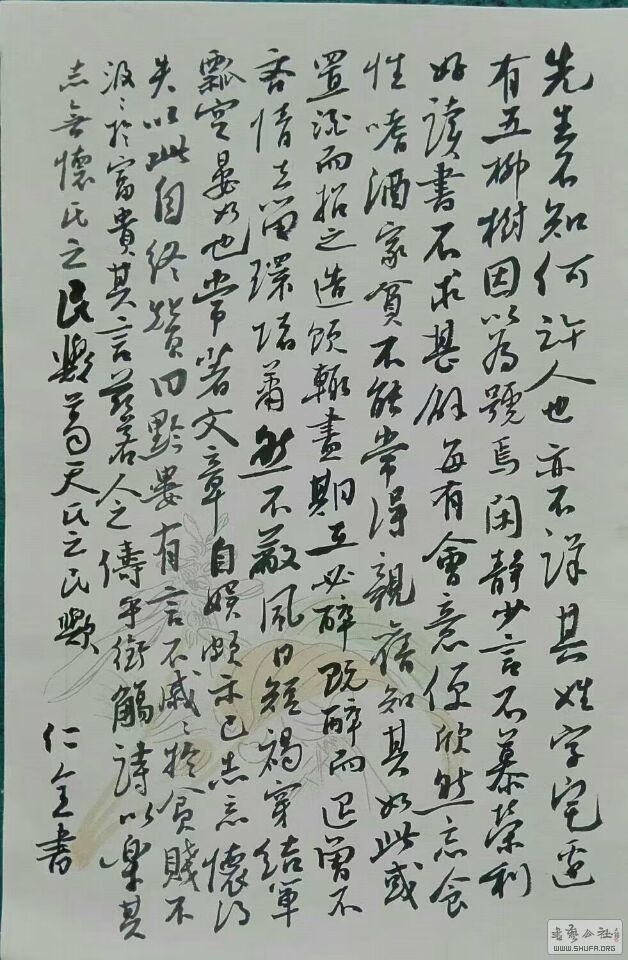 先生不知何許人也亦不詳其姓字宅邊
有五柳樹因以為號焉閑靜少言不慕榮利
好讀書不求甚解每有會意便欣然忘食
性嗜酒家貧不能常得親舊知其如此或
置酒而招之造飲輒盡期在必醉既醉而退曾不
吝情去留環堵蕭然不蔽風日短褐穿結簞
瓢空晏如也常著文章自娛頗示己志忘懷得
失以此自終贊曰黔婁有言不戚〻於貧賤不
汲〻於富貴其言茲若人之儔乎銜觴詩以樂其
志無懷氏之民歟葛天氏之民歟
仁全書
書藝公社
WWW.SHUFA.ORG